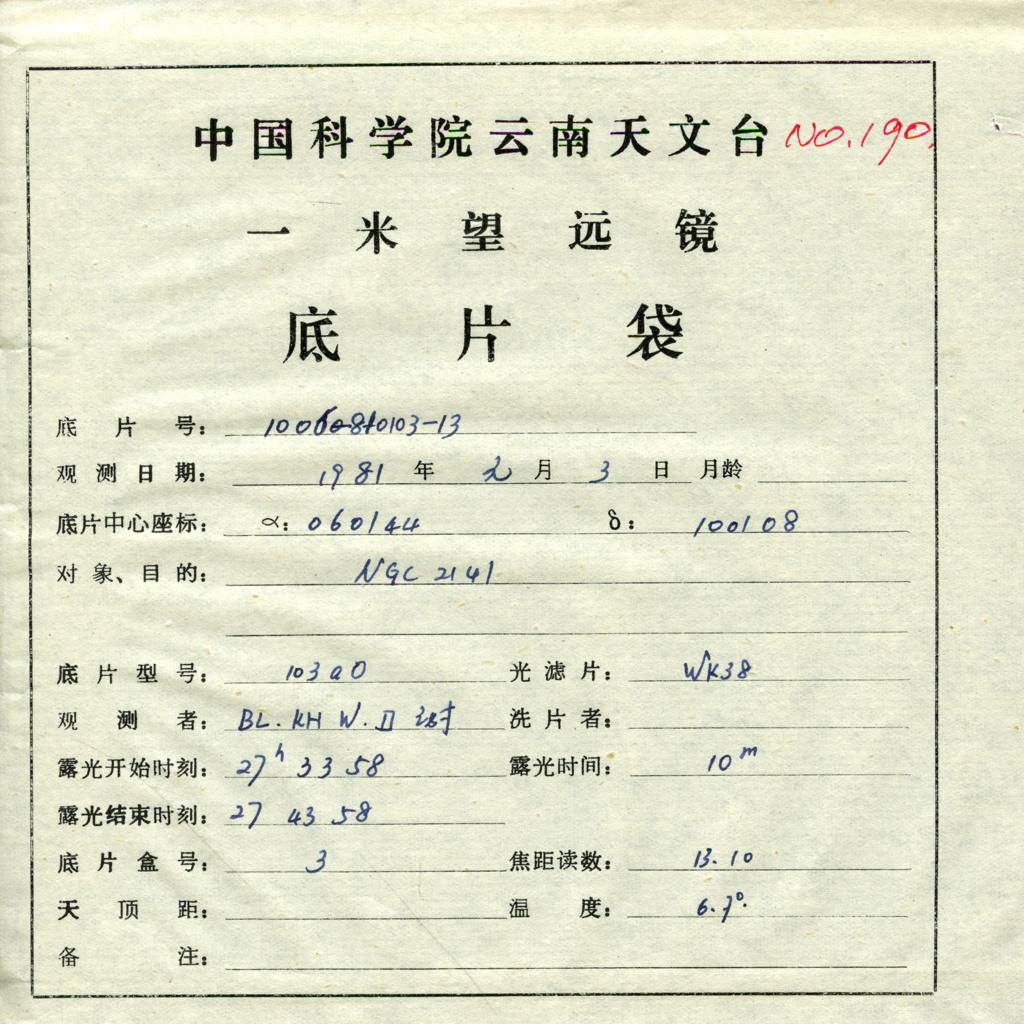 中国科学院云南天文台 NO.190
一米望远镜
底片袋
底片号：100 810103-13
观测日期：1981年元月3日 月龄
底片中心座标：α：060144 δ：100108
对象、目的：NGC 2141
底片型号：103aO 光滤片：WK38
观测者：BL. KH W. II 洗片者：
露光开始时刻：27h 33 58 露光时间：10m
露光结束时刻：27 43 58
底片盒号：3 焦距读数：13.10
天顶距： 温度：6.7°
备注：